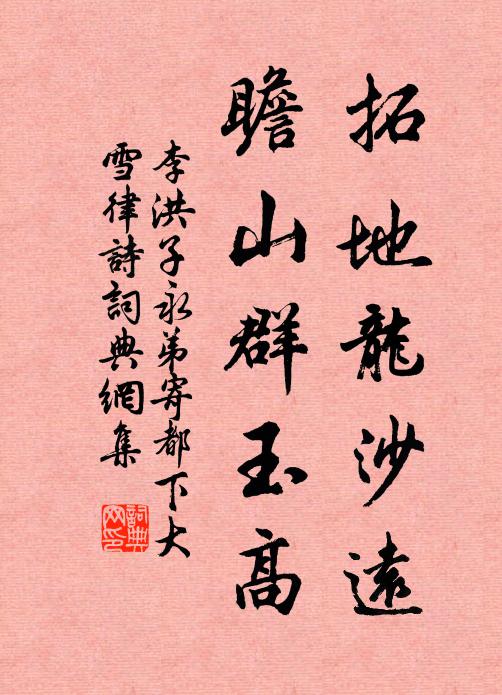 拓地龍沙遠
瞻山群玉高
李洪子永弟寄都下大
雪律詩詞典網集
詞典網印